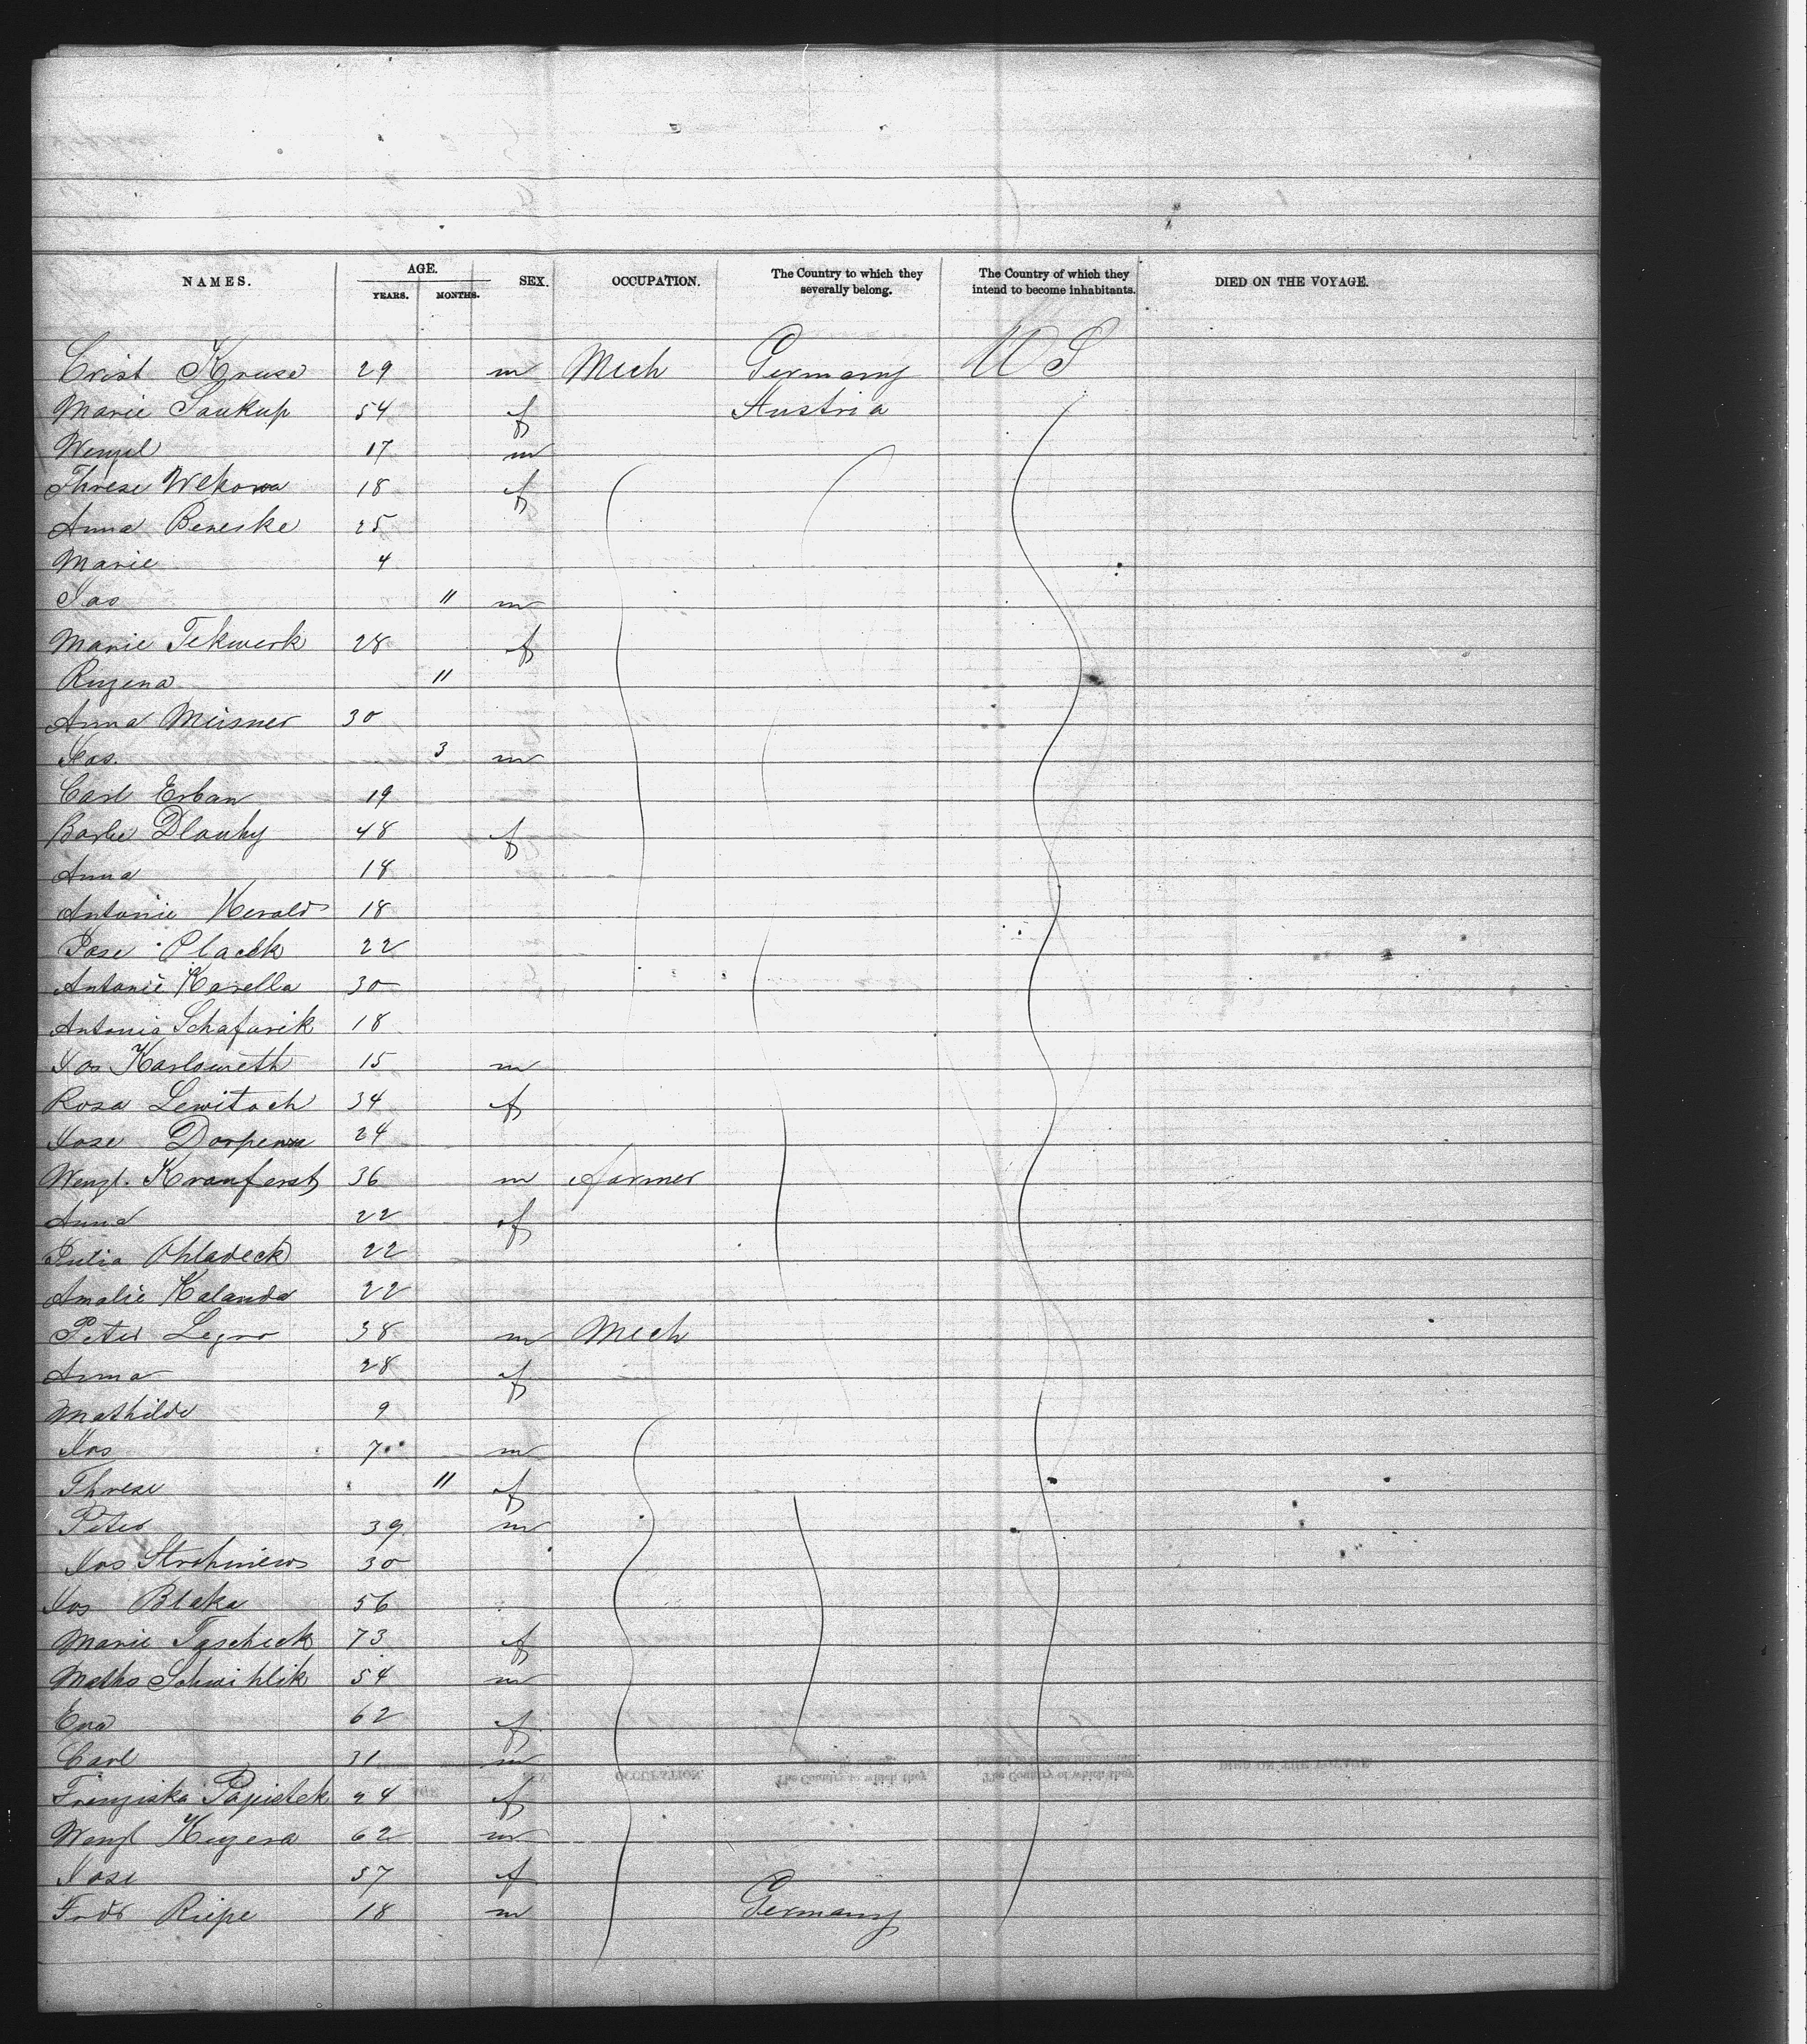 NAMES. AGE. YEARS. MONTHS. SEX. OCCUPATION. The Country to which they severally belong. The Country of which they intend to become inhabitants. DIED ON THE VOYAGE.
Crist Kruse 29 m Mech Germany US
Marie Soukup 54 f Austria
Wenzel 17 m
Threse Wekowa 18 f
Anna Beneske 25
Marie 4
Jos 11 m
Marie Tekwerk 28 f
Ruzena 11
Anna Meisner 30
Jos. 3 m
Carl Erban 19
Barbe Dlouhy 48 f
Anna 18
Antonie Herald 18
Jose Placek 22
Antonie Karella 30
Antonia Schafarik 18
Jos Karloweth 15 m
Rosa Lewitoch 34 f
Jose 24
Wenzl. 36 m farmer
Anna 22 f
Julia Chladeck 22
Amalie Kalanda 22
Peter Legro 38 m Mech
Anna 28 f
Mathilde 9
Jos 7 m
Threse 11 f
Peter 39 m
Jos 30
Jos Blaka 56
Marie Tascheck 73 f
Maths Schwihlik 54 m
Eva 62 f
Carl 31 m
Franziska 24 f
Wenzl Kuzera 62 m
Jose 57 f
Fredr Riepe 18 m Germany